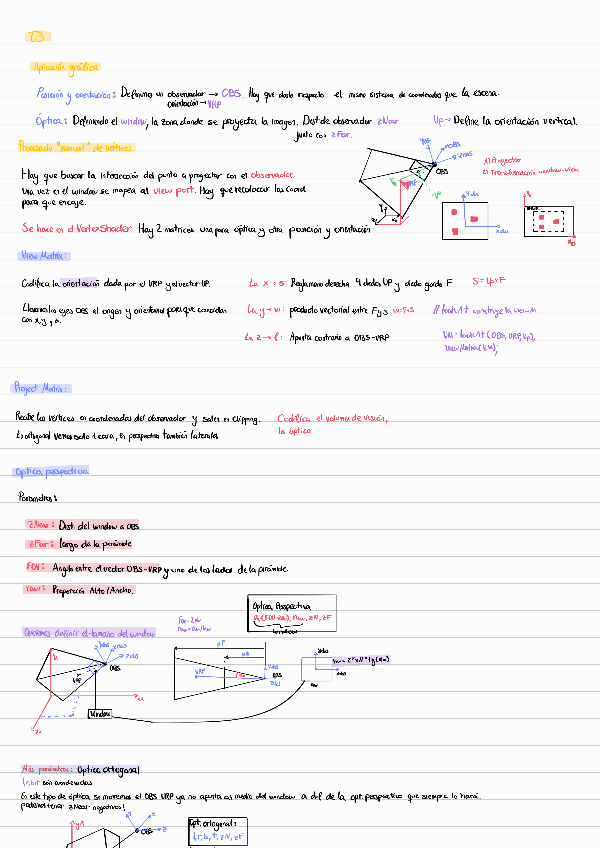 T3
Aplicación gráfica
Posición y orientación: Definimos un observador → OBS. Hay que darlo respecto el mismo sistema de coordenadas que la escena.
orientación → VRP
Óptica: Definiendo el window, la zona donde se proyecta la imagen. Dist de observador zNear
junto con zFar.
Up → Define la orientación vertical.
Procesado "manual" de vértices
Hay que buscar la intersección del punto a proyectar con el observador
Una vez en el window se mapea al view port. Hay que recolocar las coord
para que encaje.
Se hace en el VertexShader. Hay 2 matrices una para óptica y otra posición y orientación
OBS
1) Proyectar
2) Transformación window-view
View Matrix:
Codifica la orientación dada por el VRP y el vector UP.
Llamamos eyes OBS el origen y orientamos para que coincidan
con x, y, z.
La x → s: Regla mano derecha 4 dedos UP y dedo gordo F
S = Up × F
La y → u: producto vectorial entre F y S
La z → f: Apunta contrario a OBS-VRP
// lookAt construye la view M.
VM = lookAt (OBS, VRP, Up);
viewMatrix(VM);
Project Matrix:
Recibe los vértices en coordenadas del observador y salen en clipping.
Codifica el volumen de visión,
la óptica.
Optica perspectiva
Parámetros:
zNear: Dist. del window a OBS
zFar: largo de la pirámide
FOV: Angulo entre el vector OBS-VRP y uno de los lados de la pirámide.
raw: Proporción Alto/Ancho.
FOV = 2αw
Optica Perspectiva
(FOV = 2α), raw, zN, zF
window
Opciones definir el tamaño del window
OBS
VRP
Window
zF
zN
VRP
OBS
Más parámetros: Optica Ortogonal
l,r,b,t son coordenadas
En este tipo de óptica si movemos el OBS VRP ya no apunta al medio del window a dif de la opt. perspectiva que siempre lo hará.
podemos tener zNear negativos!
OBS
Opt. ortogonal:
l, r, b, t, zN, zF